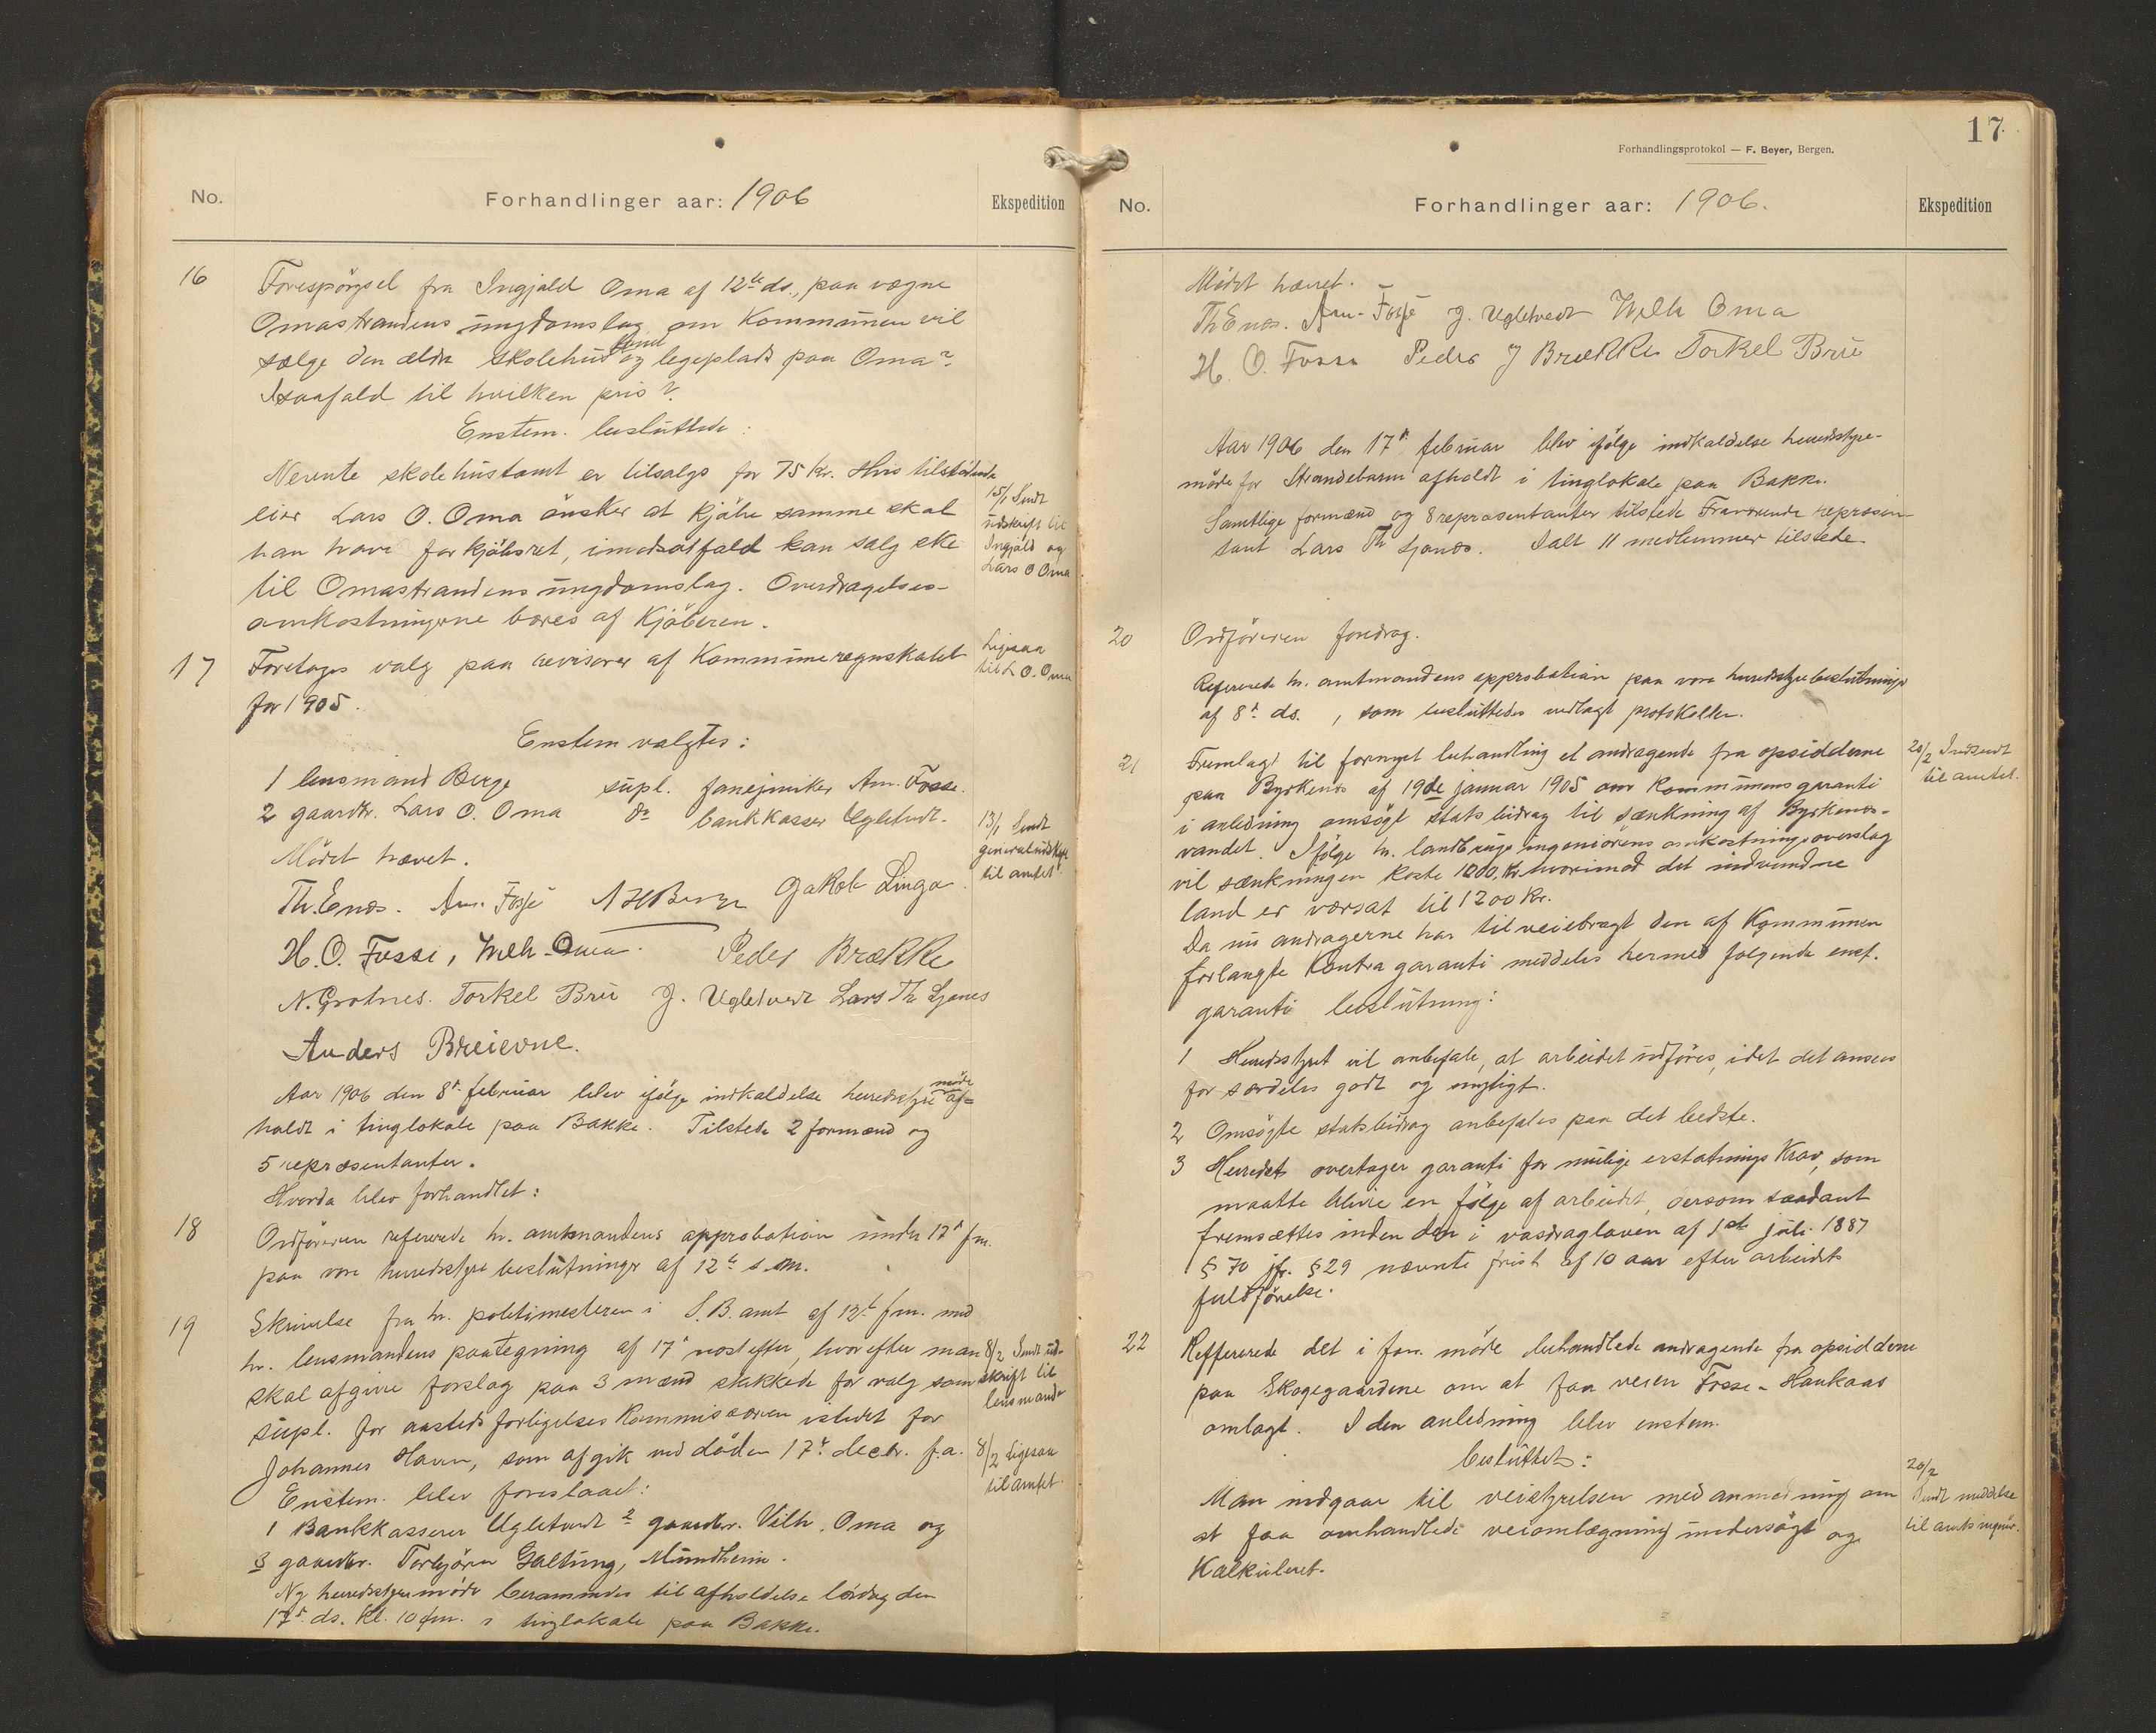 No.
Forhandlinger aar: 1906
Ekspedition
16
Forespörgsel fra Ingjald Oma af 12te ds., paa vægne
Omastrandens ungdomslag om Kommunen vil
sælge den ældre skolehustomt og legeplads paa Oma?
Isaafald til hvilken pris?
Enstem. besluttede:
Nevnte skolehustomt er tilsalgs for 75 kr. Hvis tilstödende
eier Lars O. Oma önsker at kjöbe samme skal
han have forkjöbsret, imodsatfald kan salg ske
til Omastrandens ungdomslag. Overdragelses-
omkostningerne bæres af Kjöberen.
15/1 Sendt
udskrift til
Ingjald og
Lars O Oma
17
Foretages valg paa revisorer af Kommuneregnskabet
for 1905.
Ligesaa
til L O. Oma
Enstem valgtes:
1 lensmand Berge supl. fanejunker Am. Fosse.
2 gaardbr. Lars O. Oma do bankkasser Ugletvedt.
Mödet hævet.
13/1 Sendt
generaludskrift
til amtet
Th. Enæs. Am. Fosse N H Berge Jakob Linga
H. O. Fosse, Wilh. Oma. Peder Brække
N. Grotnes. Torkel Brü J. Ugletvedt Lars Th Ljones
Anders Breievne.
Aar 1906 den 8de februar blev ifölge indkaldelse herredsstyremöde af-
holdt i tinglokale paa Bakke. Tilstede 2 formænd og
5 repræsentanter.
Hvorda blev forhandlet:
18
Ordföreren refererede hr. amtmandens approbation under 17de f.m.
paa vore herredsstyrebeslutninger af 12te s.m.
19
Skrivelse fra hr. politimesteren i S. B. amt af 13de f.m. med
hr. lensmandens paategning af 17de næstefter, hvorefter man
skal afgive forslag paa 3 mænd skikkede for valg som
supl. for aastedsforligelseskommissæren istedet for
Johannes Haven, som afgik ved döden 17de decbr. f.a.
Enstem. blev foreslaaet:
1 Bankkasserer Ugletvedt 2 gaardbr. Vilh. Oma og
3 gaardbr. Torbjörn Galtung, Mundheim.
8/2 Sendt ud-
skrift til
lensmand
8/2 Ligesaa
til amtet
Ny herredsstyremöde berammedes til afholdelse lördag den
17de ds. kl. 10 fm. i tinglokale paa Bakke.
17
Forhandlingsprotokol — F. Beyer, Bergen.
No.
Forhandlinger aar: 1906.
Ekspedition
Mödet hævet.
Th Enæs. Am. Fosse J. Ugletvedt Wilh Oma
H. O. Fosse Peder J Brække Torkel Brü
Aar 1906 den 17de februar blev ifölge indkaldelse herredsstyre-
möde for Strandebarm afholdt i tinglokale paa Bakke.
Samtlige formænd og 8 repræsentanter tilstede Fraværende repræsen-
tant Lars Th Ljones. Ialt 11 medlemmer tilstede.
20
Ordföreren foredrog.
Refererede hr. amtmandens approbation paa vore herredsstyrebeslutninger
af 8de ds., som besluttedes vedlagt protokollen.
21
Fremlagt til fornyet behandling et andragende fra opsidderne
paa Byrkenes af 19de januar 1905 om kommunens garanti
i anledning omsögt statsbidrag til sænkning af Byrkenes-
vandet. Ifölge hr. landbrugsingeniörens omkostningsoverslag
vil sænkningen koste 1200,kr. hvorimod det indvundne
land er værsat til 1200 kr.
20/2 Indsendt
til amtet.
Da nu andragerne har tilveiebragt den af Kommunen
forlangte Kontragaranti meddeles hermed følgende enst.
garanti beslutning:
1 Herredsstyret vil anbefale, at arbeidet udföres, idet det ansees
for særdeles godt og nyttigt.
2 Omsögte statsbidrag anbefales paa det bedste.
3 Herredet overtager garanti for mulige erstatningskrav, som
maatte blive en fölge af arbeidet, dersom saadant
fremsættes inden den i vasdragloven af 1ste juli 1887
§ 70 jfr. § 29 nævnte frist af 10 aar efter arbeidets
fuldförelse.
22
Reffererede det i forr. möde behandlede andragende fra opsidderne
paa Skogegaardene om at faa veien Fosse - Haukaas
omlagt. I den anledning blev enstem.
besluttet:
Man indgaar til veistyrelsen med anmodning om
at faa omhandlede veiomlægning undersögt og
Kalkuleret.
20/2
Sendt meddelse
til amtsingeniör.